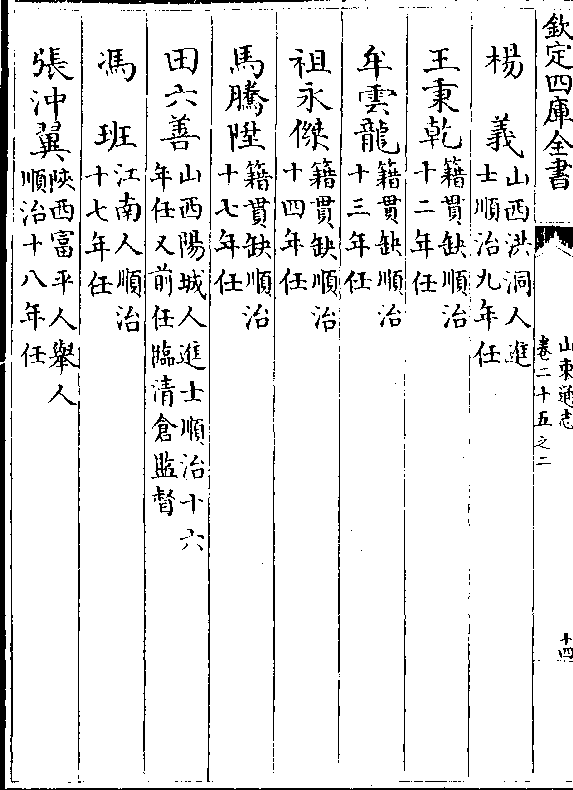 欽定四庫全書
山東通志
卷二十五之二
十四
楊義 山西洪洞人進士順治九年任
王秉乾 籍貫缺順治十二年任
牟雲龍 籍貫缺順治十三年任
祖永傑 籍貫缺順治十四年任
馬騰陞 籍貫缺順治十七年任
田六善 山西陽城人進士順治十六年任又前任臨清倉監督
馮班 江南人順治十七年任
張沖翼 陜西富平人舉人順治十八年任